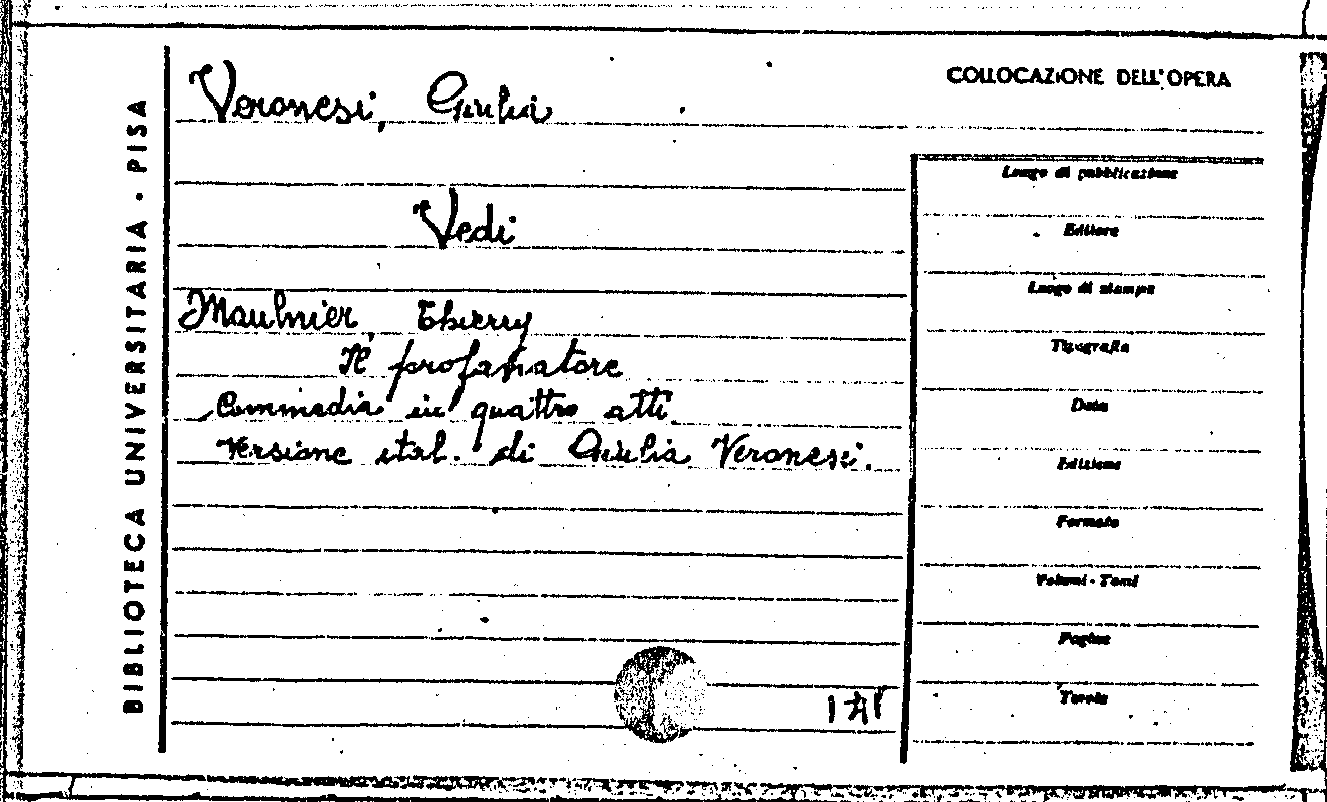 BIBLIOTECA UNIVERSITARIA - PISA
COLLOCAZIONE DELL'OPERA
Veronesi, Giulia
Vedi
Maulnier, Thierry
Il profanatore
Commedia in quattro atti.
Versione ital. di Giulia Veronesi.
Luogo di pubblicazione
Editore
Luogo di stampa
Tipografia
Data
Edizione
Formato
Volumi - Tomi
Pagine
Tavole